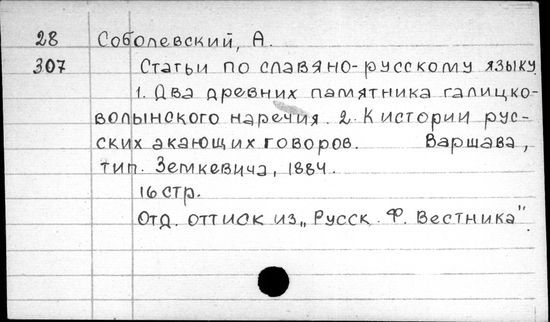 28 Соболевский, А.
307 Статьи по славяно-русскому языку
1. Два древних памятника галицко-
волынского наречия. 2. К истории рус-
ских акающих говоров. Варшава,
тип. Земкевича, 1884.
16 стр.
Отд. оттиск из „Русск. Ф. Вестника"